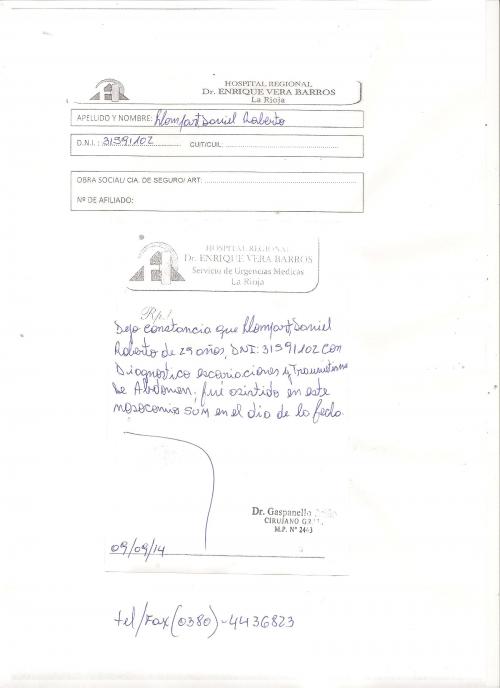 HOSPITAL REGIONAL
Dr. ENRIQUE VERA BARROS
La Rioja
APELLIDO Y NOMBRE: Llompart Daniel Roberto
D.N.I. : 31591102 CUIT/CUIL:
OBRA SOCIAL/ CIA. DE SEGURO/ ART:
Nº DE AFILIADO:
HOSPITAL REGIONAL
Dr. ENRIQUE VERA BARROS
Servicio de Urgencias Medicas
La Rioja
Rp./
Dejo constancia que Llompart Daniel
Roberto de 29 años, DNI: 31591102 con
Diagnostico escoriaciones y Traumatismo
De Abdomen, fué asistido en este
nosocomio SUM en el dia de la fecha.
Dr. Gaspanello
CIRUJANO
M.P. Nº 2443
09/09/14
tel/Fax (0380)-4436823